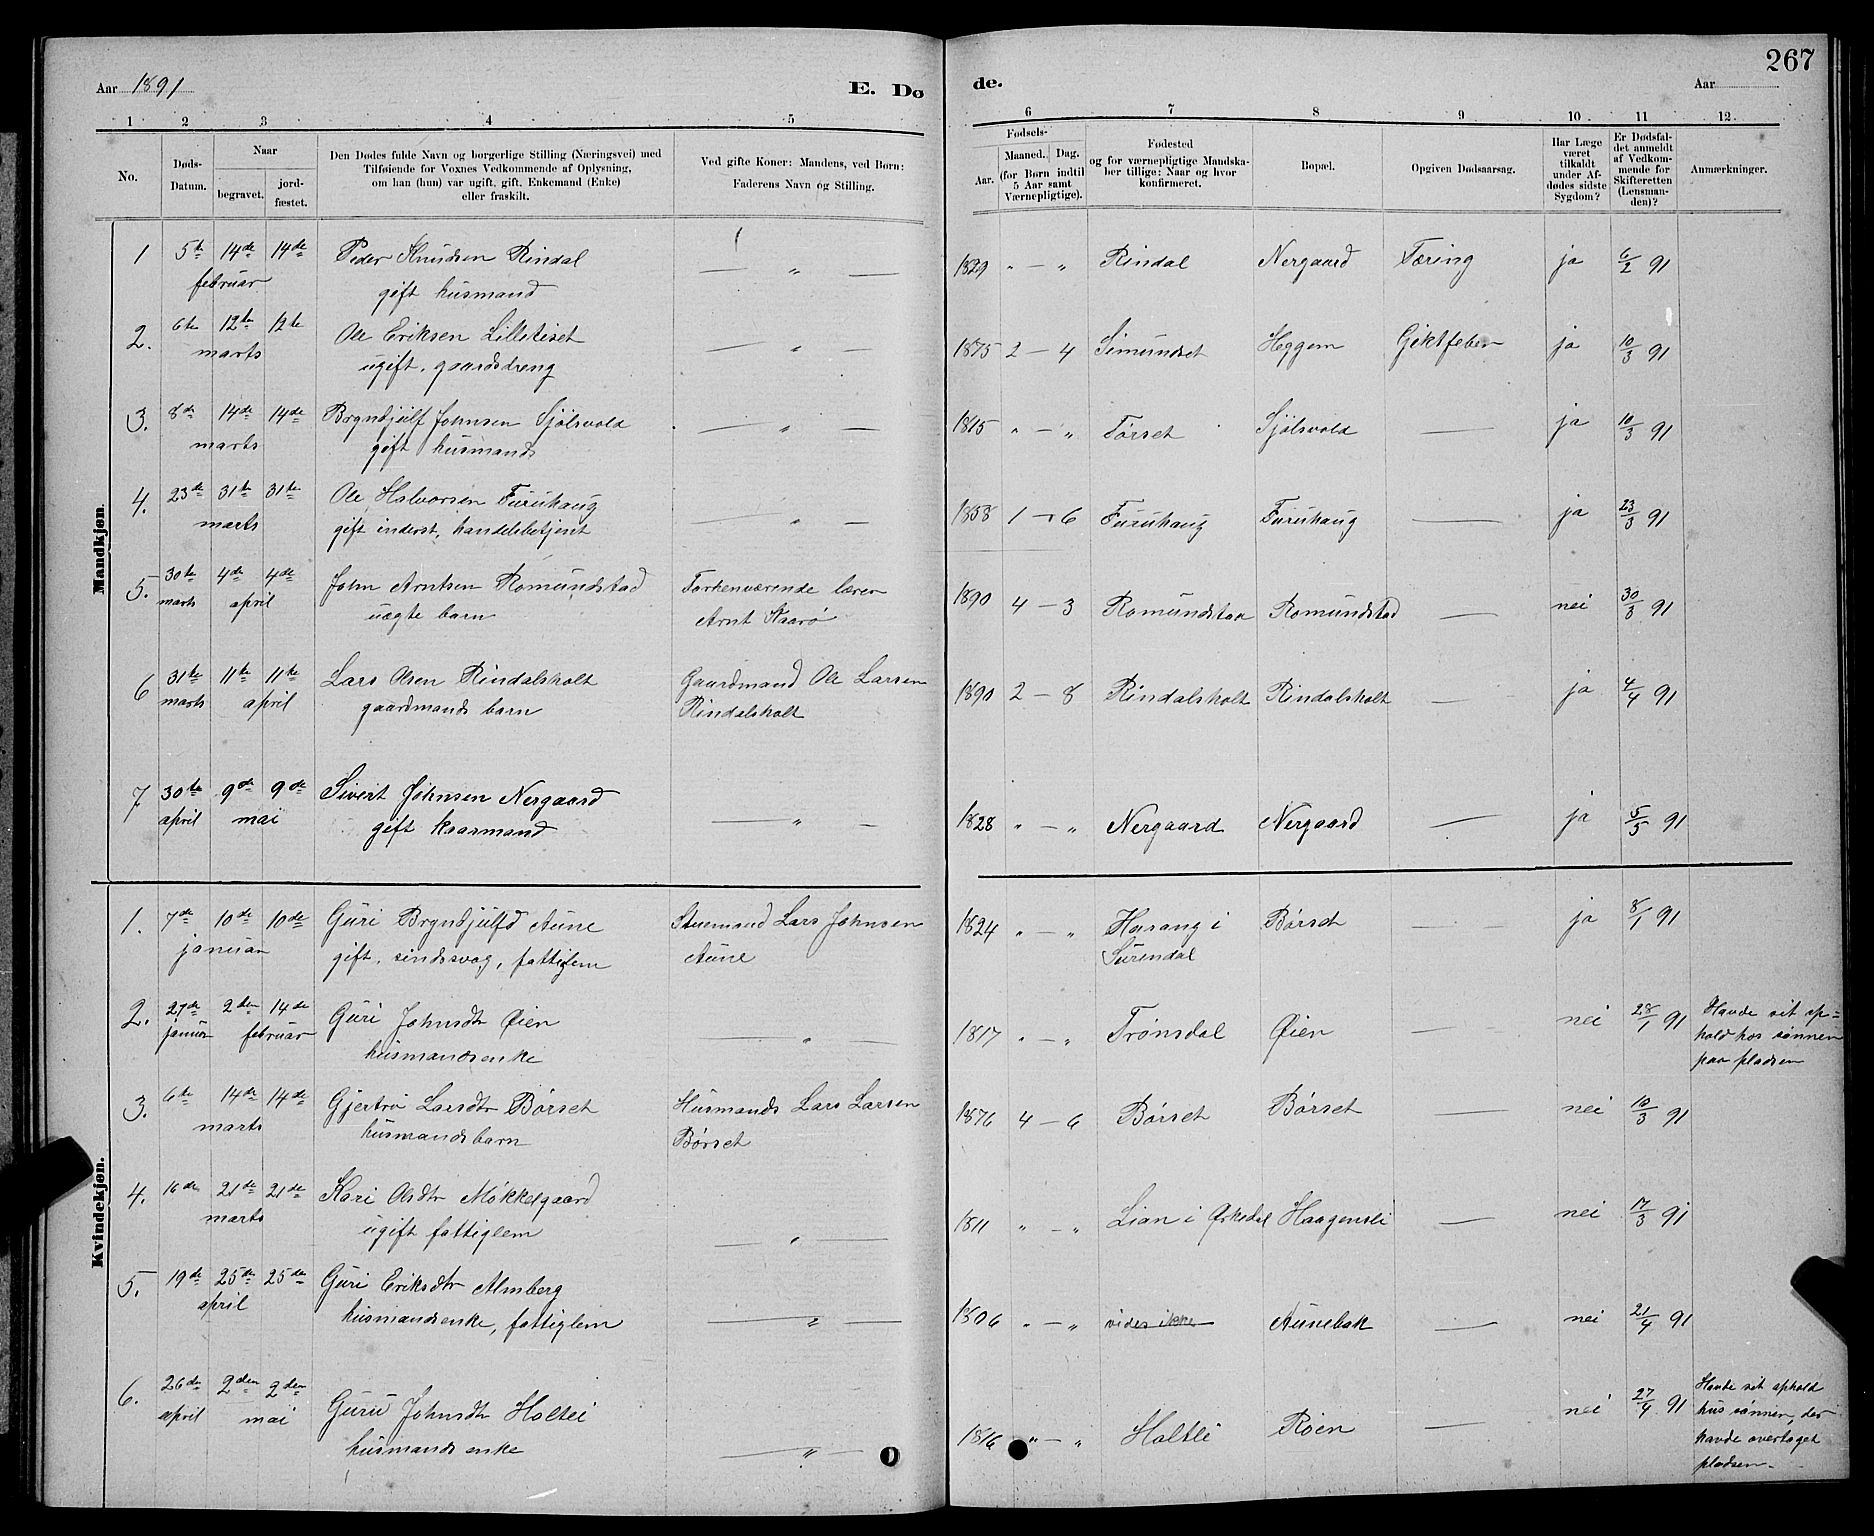 267
Aar 1891 E. Dø de. Aar
1 2 3 4 5 6 7 8 9 10 11 12
No.
Døds-
Datum.
Naar
begravet.
jord-
fæstet.
Den Dødes fulde Navn og borgerlige Stilling (Næringsvei) med
Tilføiende for Voxnes Vedkommende af Oplysning,
om han (hun) var ugift, gift, Enkemand (Enke)
eller fraskilt.
Ved gifte Koner: Mandens, ved Børn:
Faderens Navn og Stilling.
Fødsels-
Aar. Maaned. Dag.
(for Børn indtil
5 Aar samt
Værnepligtige).
Fødested
og for værnepligtige Mandska-
ber tillige: Naar og hvor
konfirmeret.
Bopæl.
Opgiven Dødsaarsag.
Har Læge
været
tilkaldt
under Af-
dødes sidste
Sygdom?
Er Dødsfal-
det anmeldt
af Vedkom-
mende for
Skifteretten
(Lensman-
den)?
Anmærkninger.
Mandkjøn.
1 5te 14de 14de Peder Knudsen Rindal — " — 1829 " — " Rindal Nergaard Tæring ja 6/2 91
februar gift husmand
2. 6te 12te 12te Ole Eriksen Lilletiset — " — 1875 2 — 4 Simundset Heggem Giktfeber ja 10/3 91
marts ugift, gaardsdreng
3. 8de 14de 14de Brynhjulf Johnsen Sjölsvold — " — 1815 " — " Tørset Sjölsvold — ja 10/3 91
marts gift husmand
4. 23de 31te 31te Ole Halvorsen Furuhaug — " — 1858 1 — 6 Furuhaug Furuhaug — ja 23/3 91
marts gift inderst, handelsbetjent
5. 30te 4de 4de John Arntsen Romundstad Forhenværende lærer 1890 4 — 3 Romundstad Romundstad — nei 30/3 91
marts april uægte barn Arnt
6 31te 11te 11te Lars Olsen Rindalsholt Gaardmand Ole Larsen 1890 2 — 8 Rindalsholt Rindalsholt — ja 4/4 91
marts april gaardmands barn Rindalsholt
7 30te 9de 9de Sivert Johnsen Nergaard — " — 1828 " — " Nergaard Nergaard — ja 5/5 91
april mai gift kaarmand
Kvindekjøn.
1. 7de 10de 10de Guri Bryndjulfd Aune Lars Johnsen 1824 " — " Harang i Børset — ja 8/1 91
januar gift, sindssvag, fattiglem Aune Surendal
2. 27de 2den 14de Guri Johnsdtr Øien — " — 1817 " — " Trønsdal Øien — nei 28/1 91 Havde sit op=
januar februar husmandsenke hold hos sønnen
paa pladsen
3. 6te 14de 14de Gjertrø Larsdtr Børset Husmands Lars Larsen 1876 4 — 6 Børset Børset — nei 10/3 91
marts husmands barn Børset
4. 16de 21de 21de Kari Olsdtr Møkkelgaard — " — 1811 " — " Lian i Orkedal Haagensli — nei 17/3 91
marts ugift fattiglem
5. 19de 25de 25de Guri Eriksdtr Almberg — " — 1806 " — " vides ikke Aunebak — nei 21/4 91
april husmandsenke, fattiglem
6. 26de 2den 2den Guru Johnsdtr Holtli — " — 1816 " — " Holtli Røen — nei 27/4 91 Havde sit ophold
april mai husmands enke hos sønnen, der
havde overtaget
pladsen.